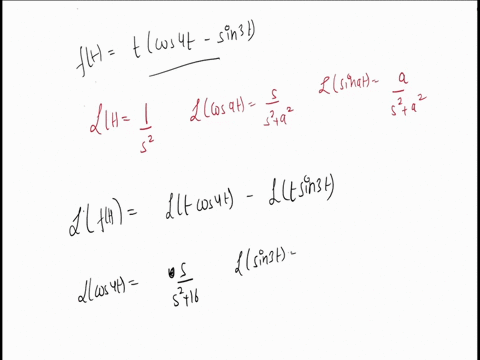 f(t) = t(cos4t - sin3t)
L(t) = 1/s² L(cosat) = s/(s²+a²) L(sinat) = a/(s²+a²)
L(f(t)) = L(t cos4t) - L(t sin3t)
L(cos4t) = s/(s²+16) L(sin3t) =